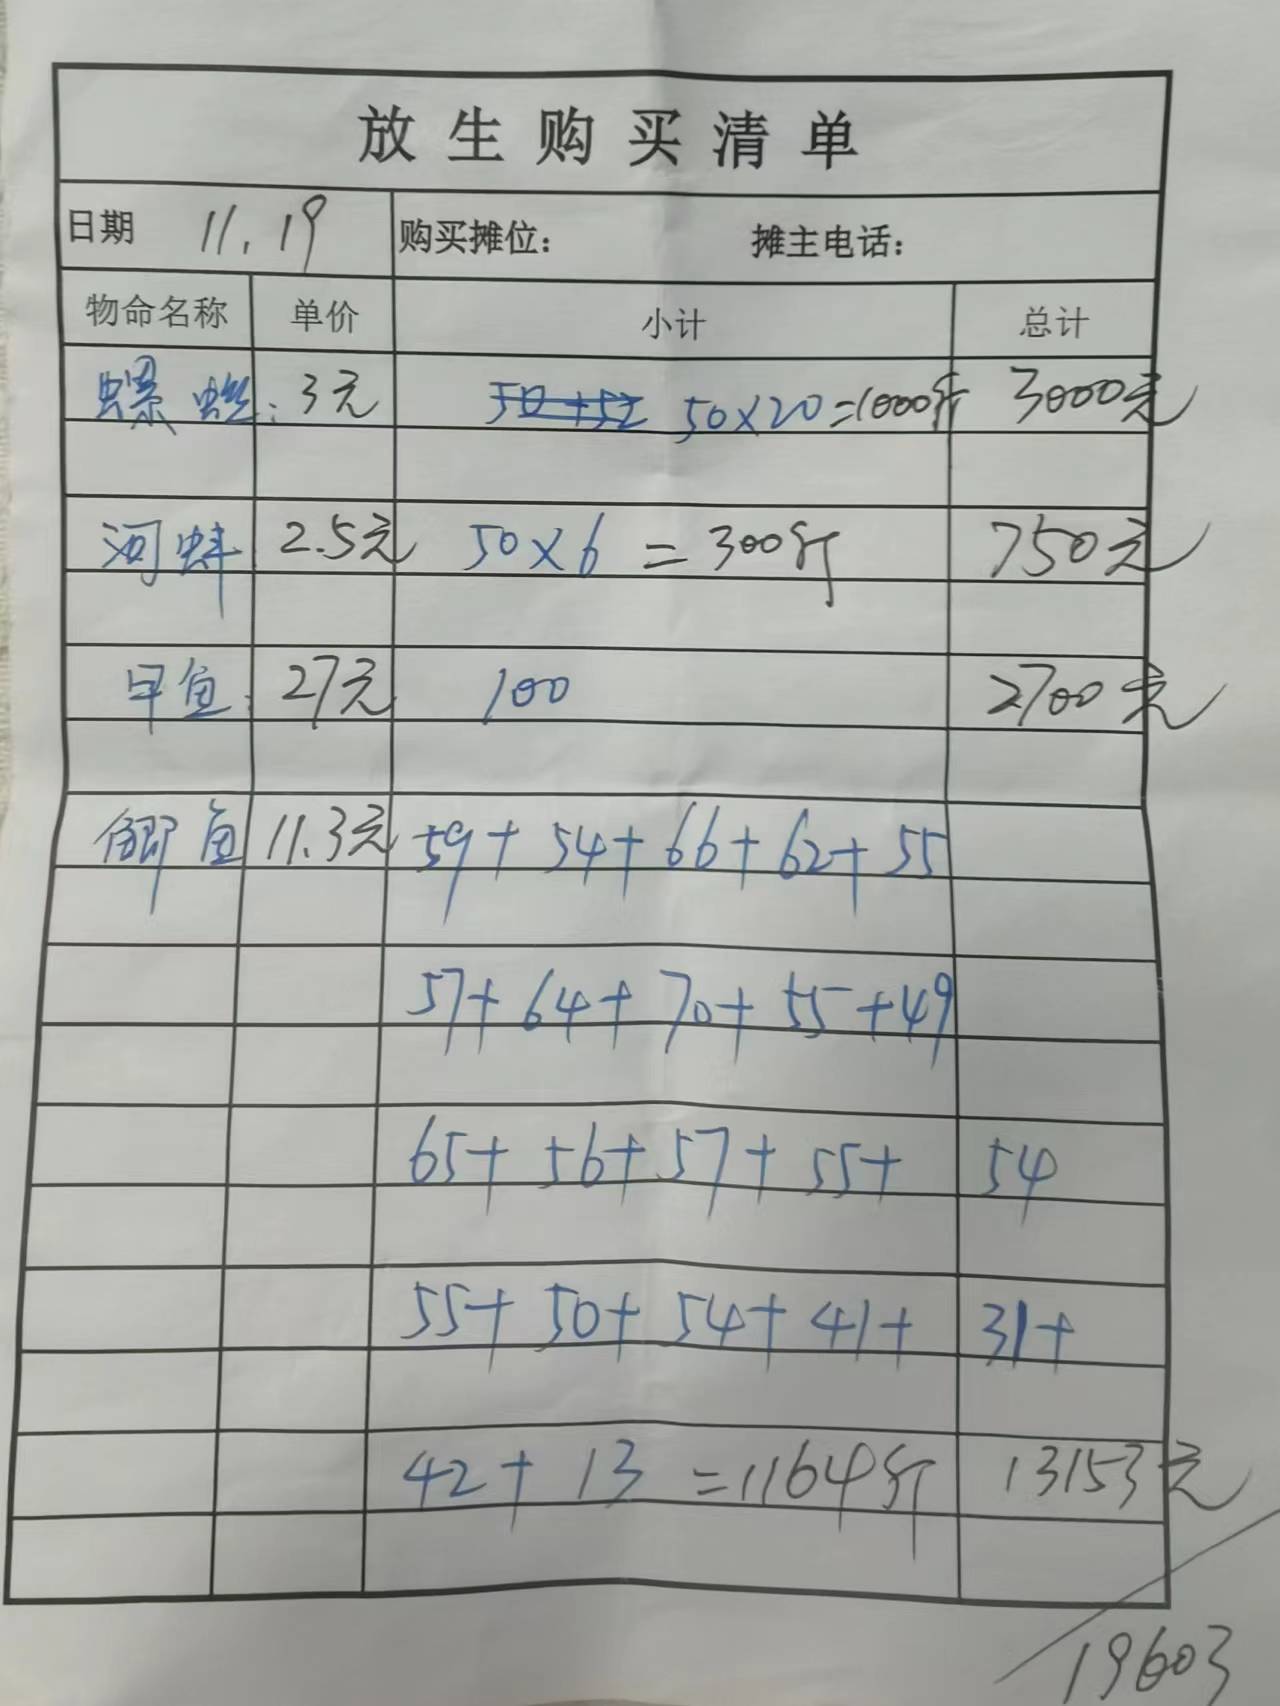 放生购买清单
日期 11.19 购买摊位： 摊主电话：
物命名称 单价 小计 总计
螺蛳: 3元 50×20=1000斤 3000元
河蚌 2.5元 50×6=300斤 750元
甲鱼: 27元 100 2700元
鲫鱼 11.3元 59+54+66+62+55
57+64+70+55+49
65+56+57+55+54
55+50+54+41+31+
42+13=1164斤 13153元
19603